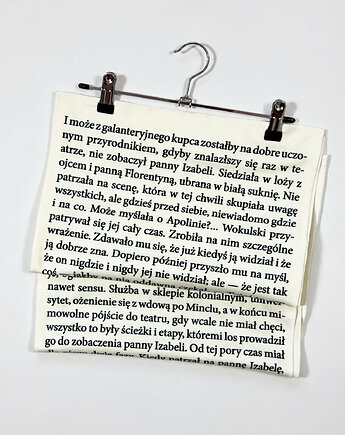 I może z galanteryjnego kupca zostałby na dobre uczo-
nym przyrodnikiem, gdyby znalazłszy się raz w te-
atrze, nie zobaczył panny Izabeli. Siedziała w loży z
ojcem i panną Florentyną, ubrana w białą suknię. Nie
patrzała na scenę, która w tej chwili skupiała uwagę
wszystkich, ale gdzieś przed siebie, niewiadomo gdzie
i na co. Może myślała o Apolinie?... Wokulski przy-
patrywał się jej cały czas. Zrobiła na nim szczególne
wrażenie. Zdawało mu się, że już kiedyś ją widział i że
ją dobrze zna. Dopiero później przyszło mu na myśl,
że on nigdzie i nigdy jej nie widział; ale — że jest tak
coś,
nawet sensu. Służba w sklepie kolonialnym, uniwer-
sytet, ożenienie się z wdową po Minclu, a w końcu mi-
mowolne pójście do teatru, gdy wcale nie miał chęci,
wszystko to były ścieżki i etapy, któremi los prowadził
go do zobaczenia panny Izabeli. Od tej pory czas miał
dwie fazy. Kiedy patrzał na pannę Izabelę,